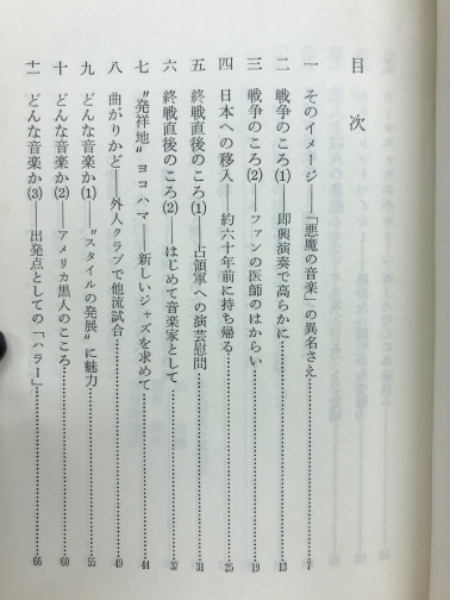 目次
一 そのイメージ――「悪魔の音楽」の異名さえ……7
二 戦争のころ(1)――即興演奏で高らかに……13
三 戦争のころ(2)――ファンの医師のはからい……19
四 日本への移入――約六十年前に持ち帰る……25
五 終戦直後のころ(1)――占領軍への演芸慰問……31
六 終戦直後のころ(2)――はじめて音楽家として……37
七 〝発祥地〟ヨコハマ――新しいジャズを求めて……44
八 曲がりかど――外人クラブで他流試合……49
九 どんな音楽か(1)――〝スタイルの発展〟に魅力……55
十 どんな音楽か(2)――アメリカ黒人のこころ……60
十一 どんな音楽か(3)――出発点としての「ハラー」……66